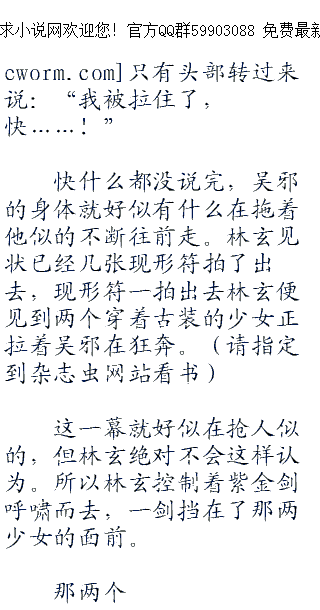 求小说网欢迎您！官方QQ群59903088 免费最新
cworm.com]只有头部转过来
说：“我被拉住了，
快……！”
快什么都没说完，吴邪
的身体就好似有什么在拖着
他似的不断往前走。林玄见
状已经几张现形符拍了出
去，现形符一拍出去林玄便
见到两个穿着古装的少女正
拉着吴邪在狂奔。（请指定
到杂志虫网站看书）
这一幕就好似在抢人似
的，但林玄绝对不会这样认
为。所以林玄控制着紫金剑
呼啸而去，一剑挡在了那两
少女的面前。
那两个